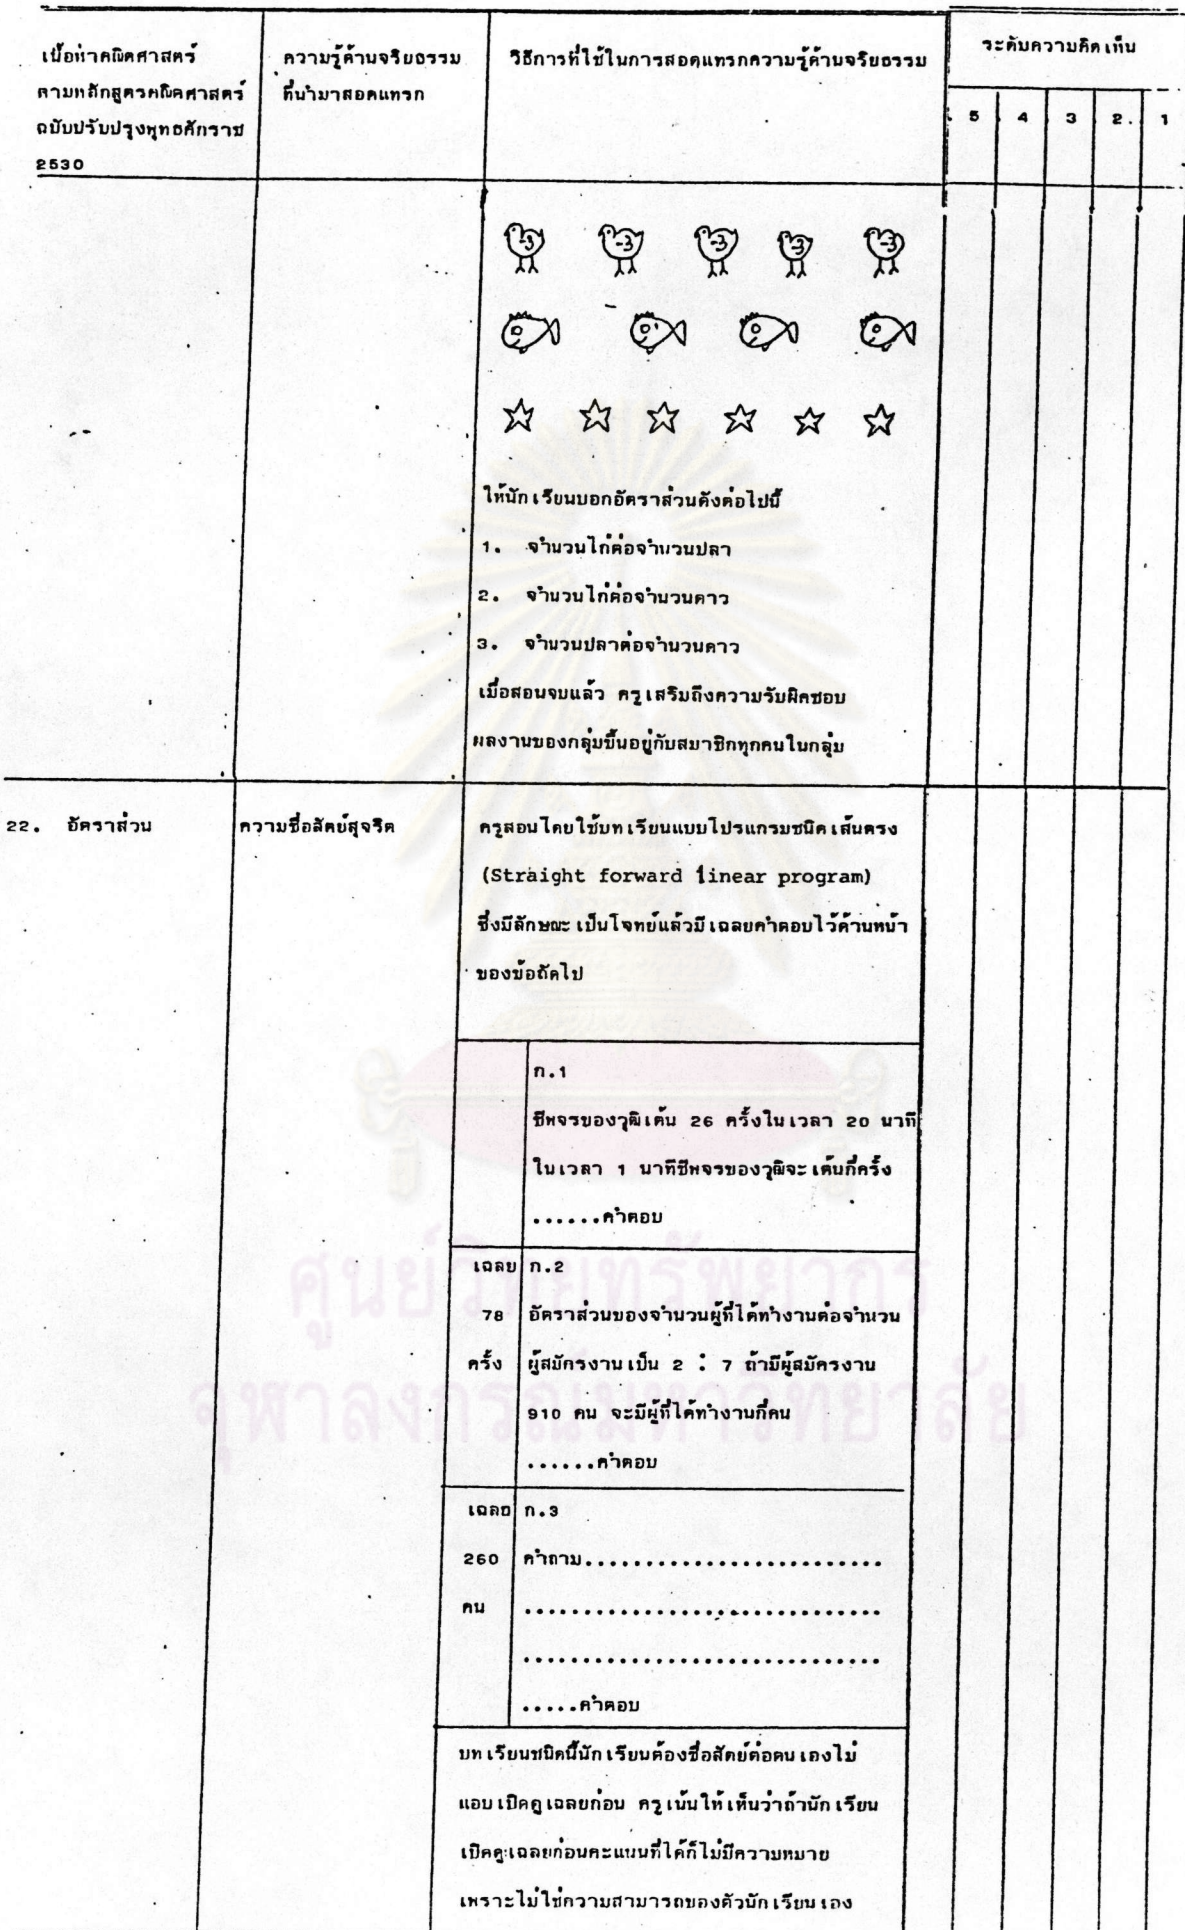 เนื้อหาคณิตศาสตร์
ตามหลักสูตรคณิตศาสตร์
ฉบับปรับปรุงพุทธศักราช
2530
ความรู้ด้านจริยธรรม
ที่นำมาสอดแทรก
วิธีการที่ใช้ในการสอดแทรกความรู้ด้านจริยธรรม
ระดับความคิดเห็น
5 4 3 2. 1
ให้นักเรียนบอกอัตราส่วนดังต่อไปนี้
1. จำนวนไก่ต่อจำนวนปลา
2. จำนวนไก่ต่อจำนวนดาว
3. จำนวนปลาต่อจำนวนดาว
เมื่อสอนจบแล้ว ครูเสริมถึงความรับผิดชอบ
ผลงานของกลุ่มขึ้นอยู่กับสมาชิกทุกคนในกลุ่ม
22. อัตราส่วน
ความซื่อสัตย์สุจริต
ครูสอนโดยใช้บทเรียนแบบโปรแกรมชนิดเส้นตรง
(Straight forward linear program)
ซึ่งมีลักษณะเป็นโจทย์แล้วมีเฉลยคำตอบไว้ด้านหน้า
ของข้อถัดไป
ก.1
ชีพจรของวุฒิเต้น 26 ครั้งในเวลา 20 นาที
ในเวลา 1 นาทีชีพจรของวุฒิจะเต้นกี่ครั้ง
......คำตอบ
เฉลย ก.2
78 อัตราส่วนของจำนวนผู้ที่ได้ทำงานต่อจำนวน
ครั้ง ผู้สมัครงานเป็น 2 : 7 ถ้ามีผู้สมัครงาน
910 คน จะมีผู้ที่ได้ทำงานกี่คน
......คำตอบ
เฉลย ก.3
260 คำถาม..........................
คน ...............................
...............................
.....คำตอบ
บทเรียนชนิดนี้นักเรียนต้องซื่อสัตย์ต่อตนเองไม่
แอบเปิดดูเฉลยก่อน ครูเน้นให้เห็นว่าถ้านักเรียน
เปิดดูเฉลยก่อนคะแนนที่ได้ก็ไม่มีความหมาย
เพราะไม่ใช่ความสามารถของตัวนักเรียนเอง
ศูนย์วิทยทรัพยากร
จุฬาลงกรณ์มหาวิทยาลัย